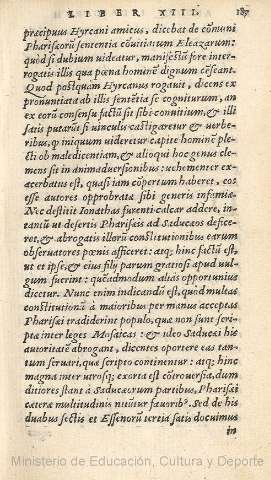 LIBER XIII.
187
præcipuus Hyrcani amicus, dicebat de cõmuni
Pharisæorũ sententia cõuitiatum Eleazarum:
quòd si dubium uideatur, manifestũ fore inter-
rogatis illis qua pœna hominẽ dignum cẽseant.
Quod postquam Hyrcanus rogauit, dicens ex
pronunciata ab illis sentẽtia se cogniturum, an
ex eorũ consensu factũ sit sibi conuitium, & illi
satis putarũt si uinculis castigaretur & uerbe-
ribus, q̃ iniquum uideretur capite hominẽ ple-
cti ob maledicentiam, & alioqui hoc genus cle-
mens sit in animaduersionibus: uehementer ex-
acerbatus est, quasi iam cõpertum haberet, eos
esse autores opprobrata sibi generis infamiæ.
Nec destitit Ionathas furenti calcar addere, in-
stantis ut desertis Pharisæis ad Sadducæos defice-
ret, & abrogatis illorũ cõstitutionibus earum
obseruatores pœnis afficeret: atq; hinc factũ est,
ut et ipse, & eius filij parum gratiosi apud uul-
gum fuerint: quẽadmodum alias opportuniùs
dicetur. Nunc enim indicandũ est, quòd multas
cõstitutiones à maioribus per manus acceptas
Pharisæi tradiderint populo, quæ non sunt scri-
ptæ inter leges Mosaicas: & ideo Saducæi his
autoritatẽ abrogant, dicentes oportere eas tan-
tum seruari, quæ scripto continentur: atq; hinc
magna inter utrosq; exorta est cõtrouersia, dum
ditiores stant à Saducæorum partibus, Pharisæi
cæteræ multitudinis nituntur fauorib⁹. Sed de his
duabus sectis et Essenorũ tertia satis docuimus
in
Ministerio de Educación, Cultura y Deporte